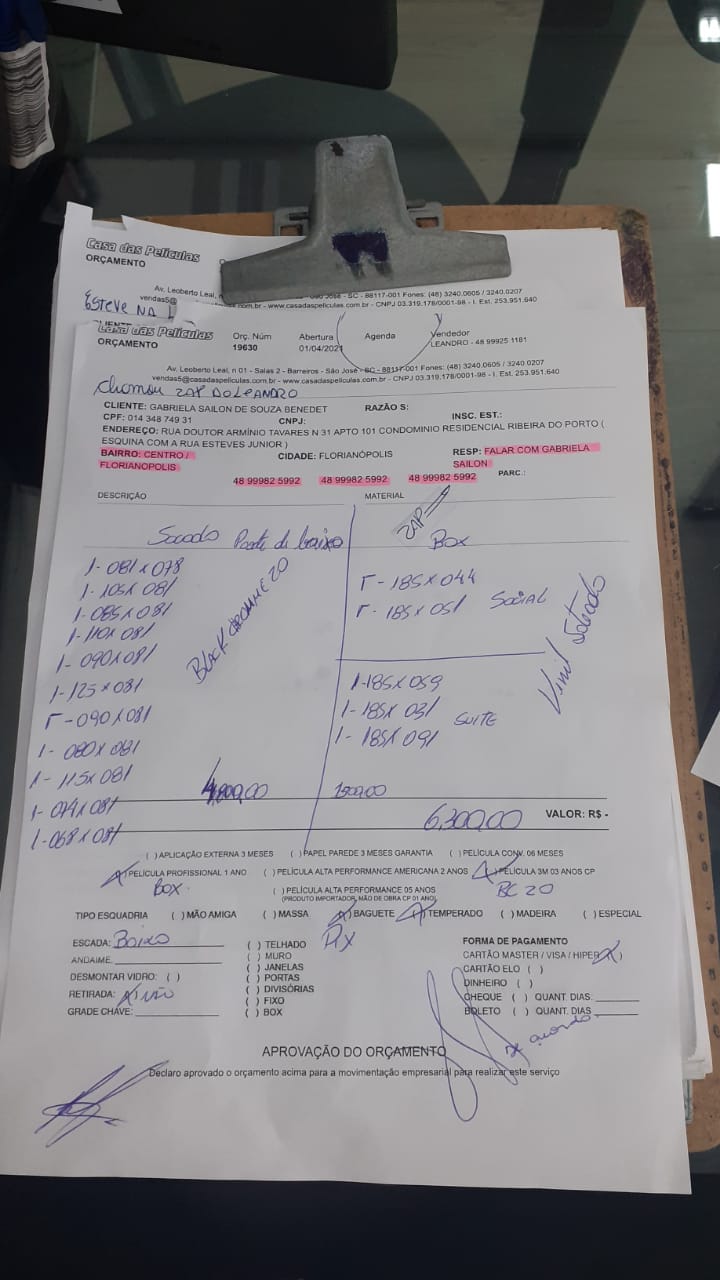 Casa das Películas
ORÇAMENTO
Av. Leoberto Leal, São José - SC - 88117-001 Fones: (48) 3240.0605 / 3240.0207
vendas5@ .com.br - www.casadaspeliculas.com.br - CNPJ 03.319.178/0001-98 - I. Est. 253.951.640
ESTEVE NA
Casa das Películas
ORÇAMENTO
Orç. Núm
19630
Abertura
01/04/2021
Agenda
Vendedor
LEANDRO - 48 99925 1181
Av. Leoberto Leal, n 01 - Salas 2 - Barreiros - São José - SC - 88117-001 Fones: (48) 3240.0605 / 3240 0207
vendas5@casadaspeliculas.com.br - www.casadaspeliculas.com.br - CNPJ 03.319.178/0001-98 - I. Est. 253.951.640
chamou ZAP DO LEANDRO
CLIENTE: GABRIELA SAILON DE SOUZA BENEDET RAZÃO S:
CPF: 014 348 749 31 CNPJ: INSC. EST.:
ENDEREÇO: RUA DOUTOR ARMÍNIO TAVARES N 31 APTO 101 CONDOMINIO RESIDENCIAL RIBEIRA DO PORTO (
ESQUINA COM A RUA ESTEVES JUNIOR )
BAIRRO: CENTRO / FLORIANOPOLIS
CIDADE: FLORIANÓPOLIS
RESP: FALAR COM GABRIELA SAILON
48 99982 5992 48 99982 5992 48 99982 5992 PARC.:
DESCRIÇÃO
MATERIAL
ZAP
Sacada Parte de baixo
1- 081 x 078
1- 105 x 081
1- 085 x 081
1- 110 x 081
1- 090 x 081
1- 125 x 081
1- 090 x 081
1- 080 x 081
1- 115 x 081
1- 074 x 081
1- 068 x 081
BLACK CROMME 20
4.800,00
BOX
1- 185 x 044
1- 185 x 051 SOCIAL
1- 185 x 059
1- 185 x 031 SUITE
1- 185 x 091
Vinil
1500,00
6.300,00
VALOR: R$ -
( ) APLICAÇÃO EXTERNA 3 MESES ( ) PAPEL PAREDE 3 MESES GARANTIA ( ) PELÍCULA CONV. 06 MESES
(X) PELÍCULA PROFISSIONAL 1 ANO ( ) PELÍCULA ALTA PERFORMANCE AMERICANA 2 ANOS (X) PELÍCULA 3M 03 ANOS CP
BOX
( ) PELÍCULA ALTA PERFORMANCE 05 ANOS
BC 20
(PRODUTO IMPORTADOR, MÃO DE OBRA CP 01 ANO)
TIPO ESQUADRIA ( ) MÃO AMIGA ( ) MASSA (X) BAGUETE (X) TEMPERADO ( ) MADEIRA ( ) ESPECIAL
ESCADA: BAIXO
ANDAIME:
DESMONTAR VIDRO: ( )
RETIRADA: X NÃO
GRADE CHAVE:
( ) TELHADO
( ) MURO
( ) JANELAS
( ) PORTAS
( ) DIVISÓRIAS
( ) FIXO
( ) BOX
FORMA DE PAGAMENTO
CARTÃO MASTER / VISA / HIPER (X)
CARTÃO ELO ( )
DINHEIRO ( )
CHEQUE ( ) QUANT. DIAS:
BOLETO ( ) QUANT. DIAS
APROVAÇÃO DO ORÇAMENTO
Declaro aprovado o orçamento acima para a movimentação empresarial para realizar este serviço